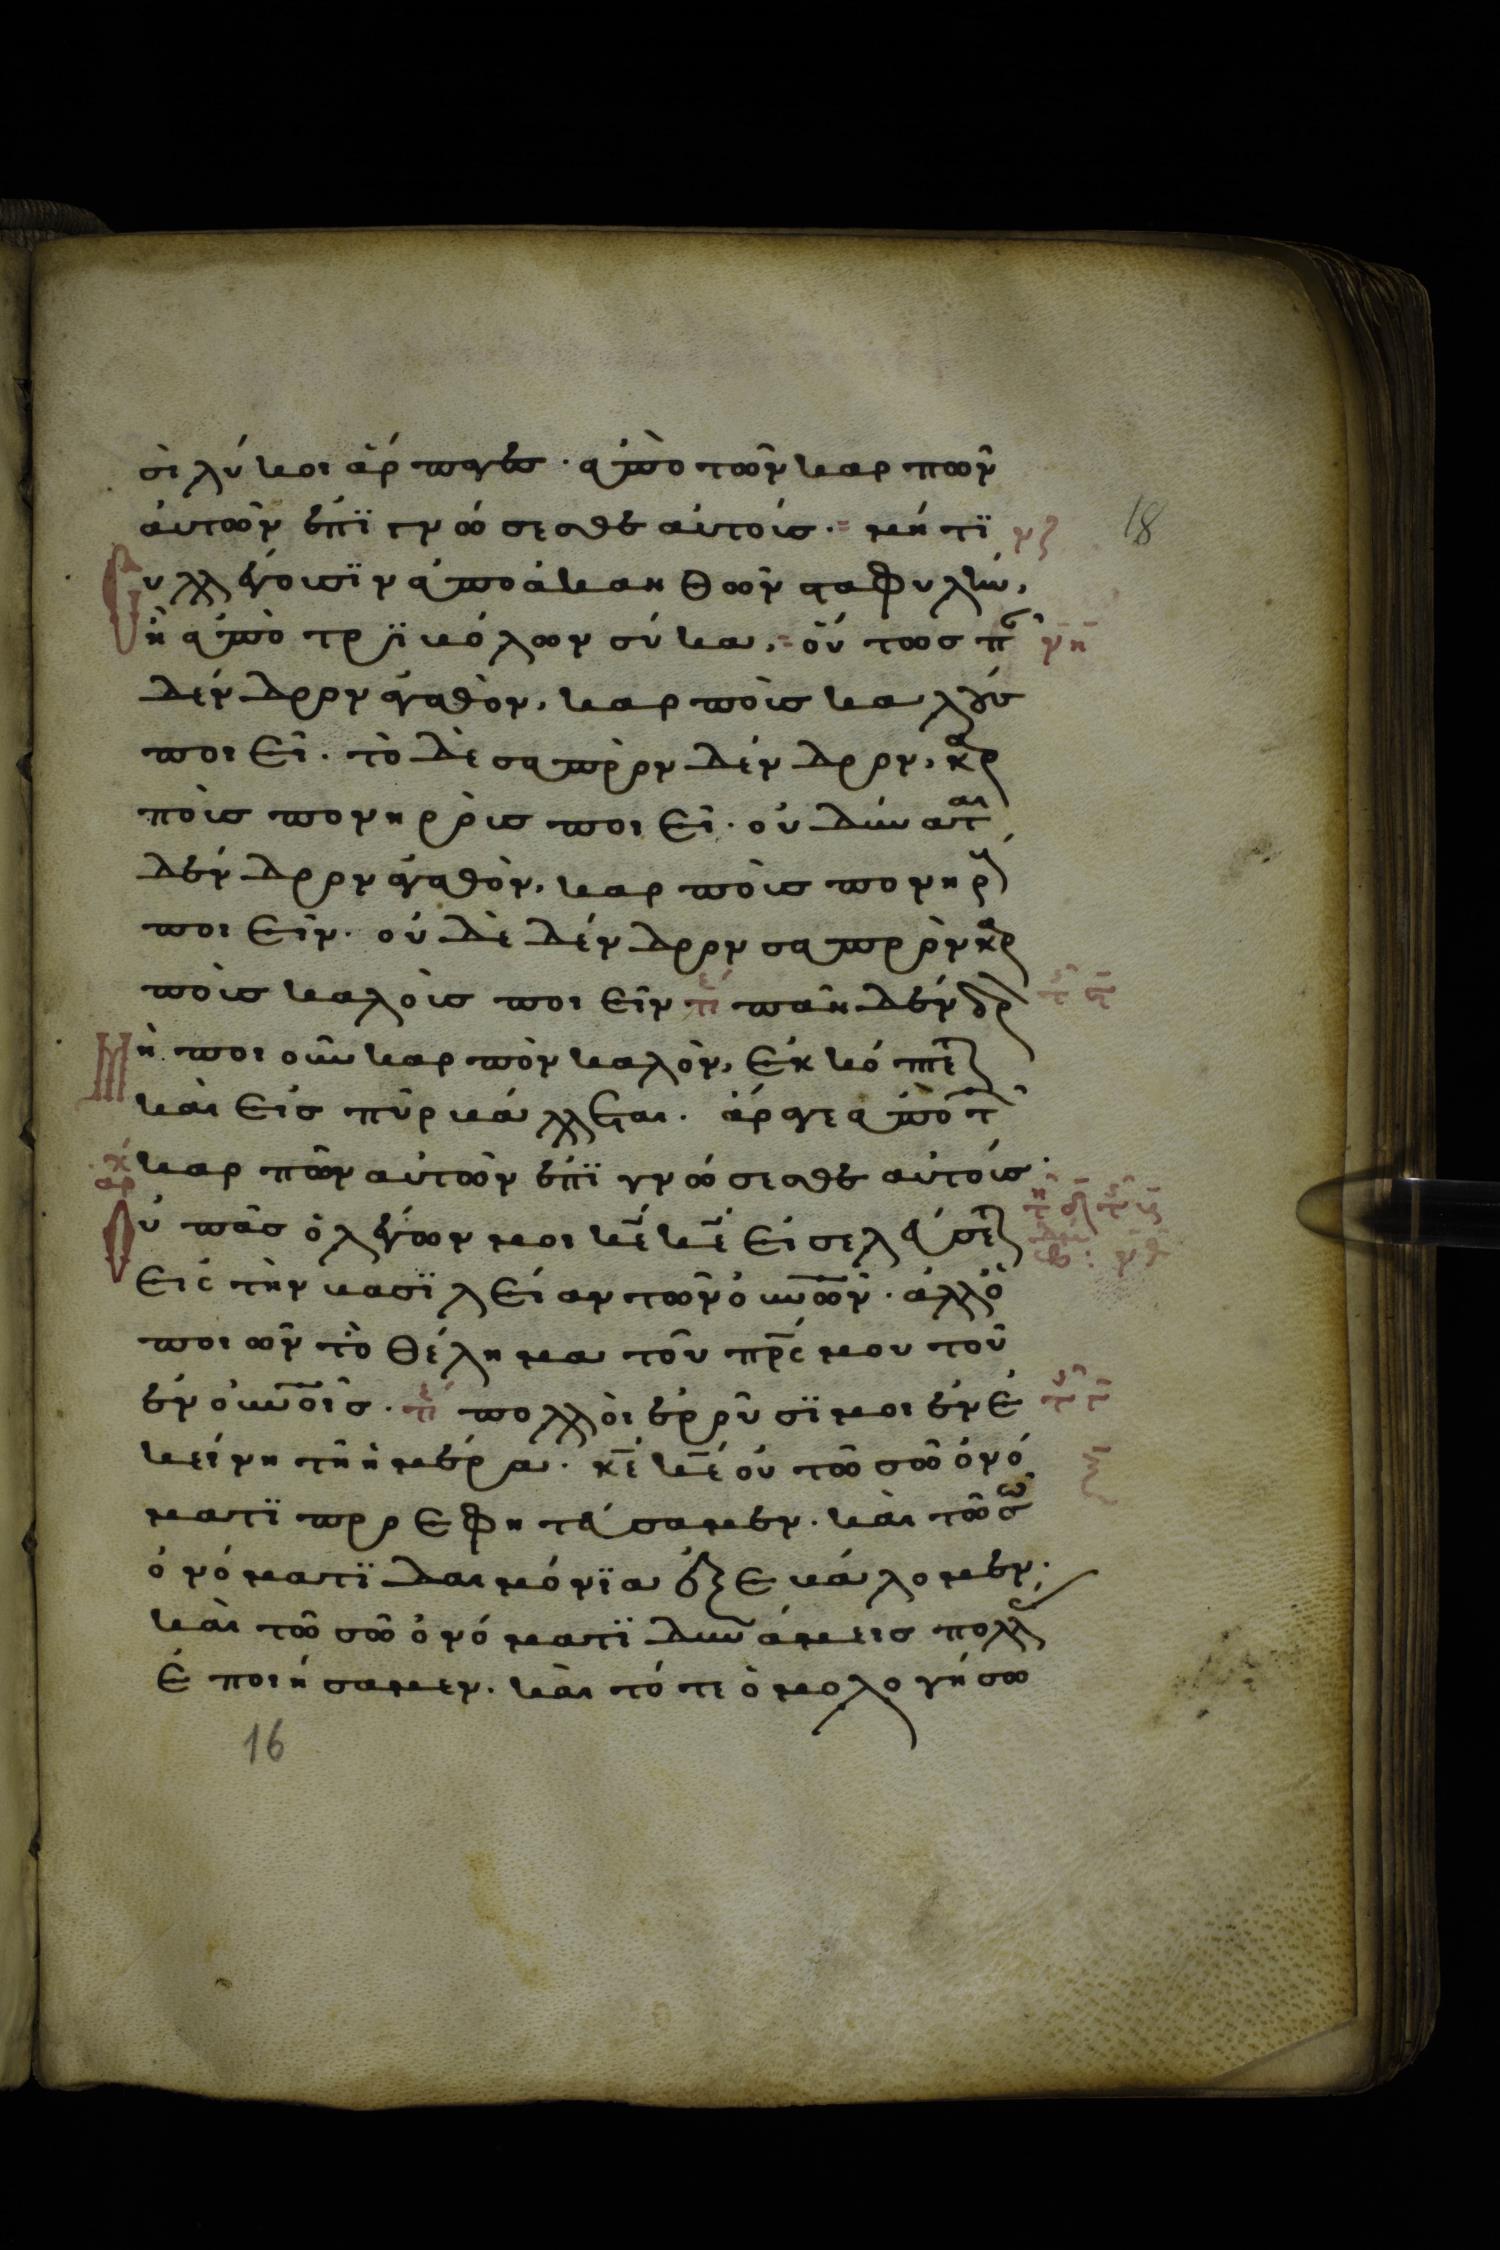 σὶ λύκοι ἅρπαγες · ἀπὸ τῶν καρπῶν
αὐτῶν ἐπϊγνώσεσθε αὐτούς · μήτϊ νζ 18
Συλλέγουσϊν ἀπὸ ἀκανθῶν σταφυλὴν,
ἢ ἀπὸ τρϊβόλων σύκα, οὕτως π νη
δένδρον ἀγαθὸν, καρποὺς καλοὺς
ποιεῖ · τὸ δὲ σαπρὸν δένδρον, καρ
ποὺς πονηροὺς ποιεῖ · οὐ δύναται
δένδρον ἀγαθὸν, καρποὺς πονηρ
ποιεῖν · οὐδὲ δένδρον σαπρὸν καρ
ποὺς καλοὺς ποιεῖν πᾶν δένδρ
Μὴ ποιοῦν καρπὸν καλὸν, ἐκκόπτε
καὶ εἰς πῦρ βάλλεται · ἄραγε ἀπὸ τ
καρπῶν αὐτῶν ἐπϊγνώσεσθε αὐτούς ·
Οὐ πᾶς ὁ λέγων μοι κε κε εἰσελεύσε
εἰς τὴν βασϊλείαν τῶν οὐνῶν · ἀλλ ὁ
ποιῶν τὸ θέλημα τοῦ πρς μου τοῦ
ἐν οὐνοῖς · πολλοὶ ἐροῦσϊ μοι ἐν ἐ
κείνη τῆ ἡμέρα · κε κε οὐ τῶ σῶ ὀνό
ματϊ προεφητεύσαμεν · καὶ τῶ σῶ
ὀνόματϊ δαιμόνϊα ἐξεβάλομεν ·
καὶ τῶ σῶ ὀνόματϊ δυνάμεις πολλ
ἐποιήσαμεν · καὶ τότε ὁμολογήσω
16